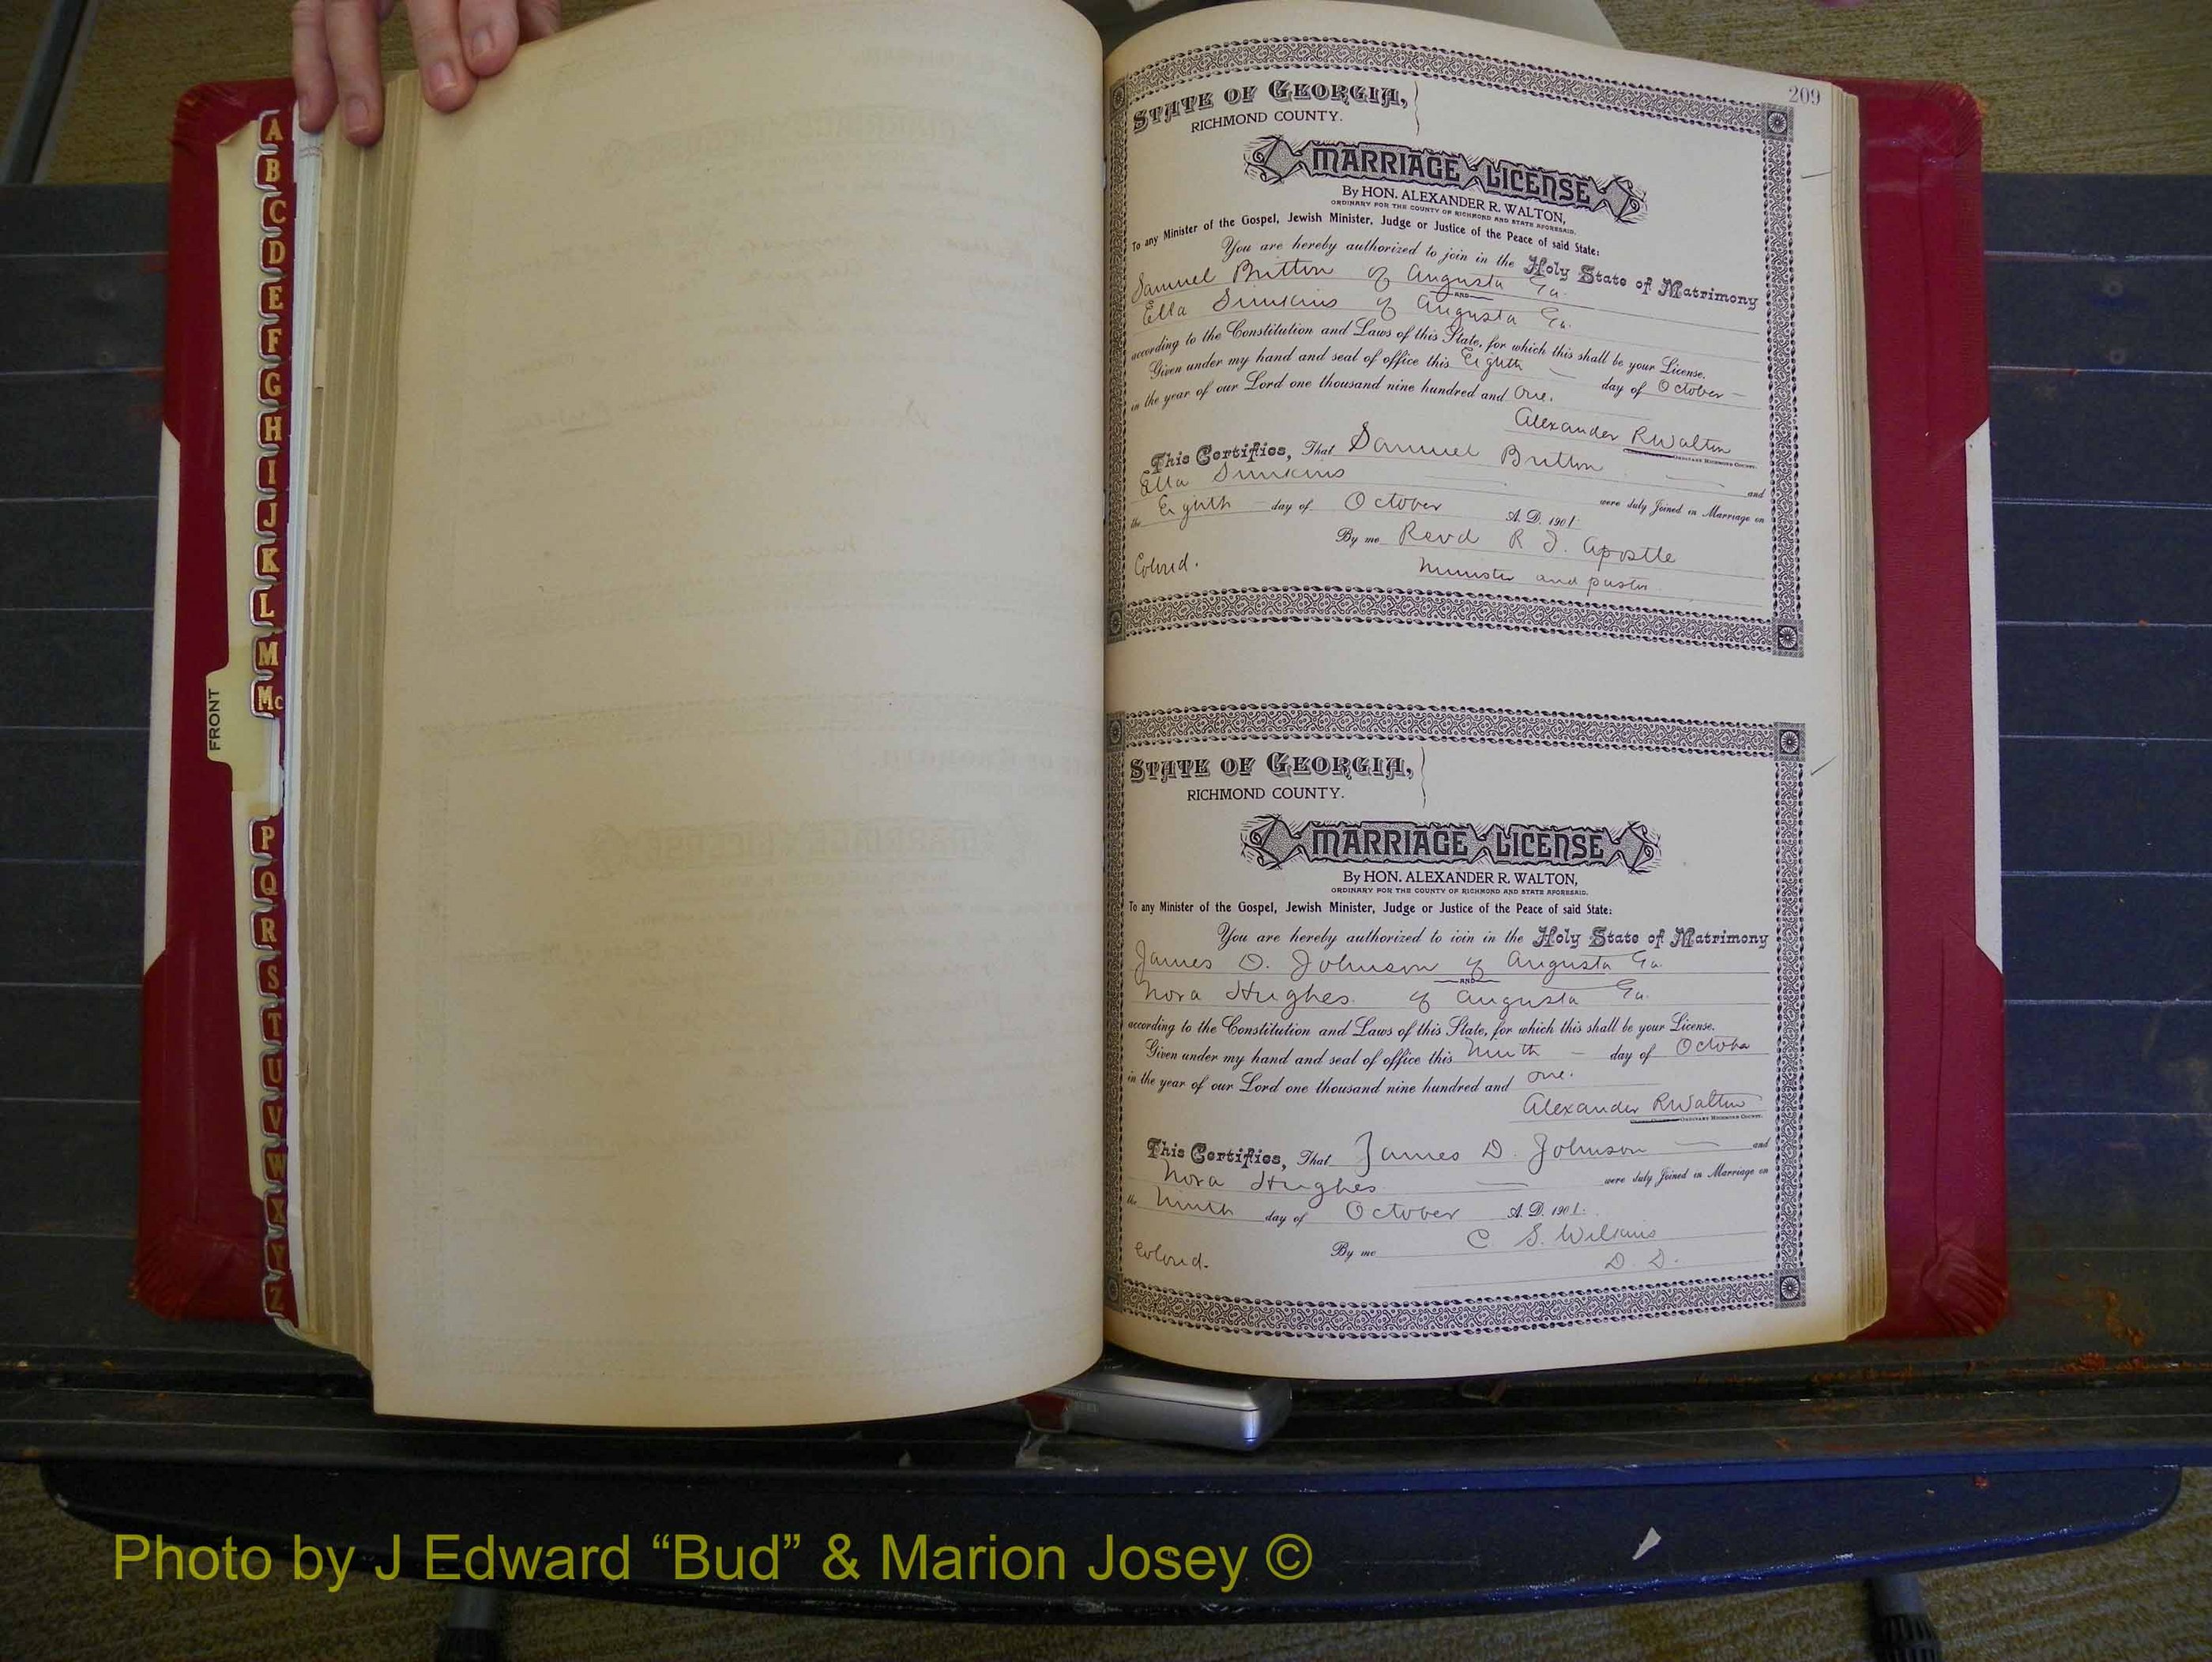 A
B
C
D
E
F
G
H
I
J
K
L
M
Mc
FRONT
P
Q
R
S
T
U
V
W
X
Y
Z
209
STATE OF GEORGIA,
RICHMOND COUNTY.
MARRIAGE LICENSE
By HON. ALEXANDER R. WALTON,
ORDINARY FOR THE COUNTY OF RICHMOND AND STATE AFORESAID.
To any Minister of the Gospel, Jewish Minister, Judge or Justice of the Peace of said State:
You are hereby authorized to join in the Holy State of Matrimony
Samuel Britton of Augusta Ga.
AND
Ella Simkins of Augusta Ga.
according to the Constitution and Laws of this State, for which this shall be your License.
Given under my hand and seal of office this Eighth day of October
in the year of our Lord one thousand nine hundred and One.
Alexander R Walton
ORDINARY RICHMOND COUNTY.
This Certifies, That Samuel Britton and
Ella Simkins were duly Joined in Marriage on
the Eighth day of October A. D. 1901.
By me Revd R J. Apostle
Colord. Minister and pastor
STATE OF GEORGIA,
RICHMOND COUNTY.
MARRIAGE LICENSE
By HON. ALEXANDER R. WALTON,
ORDINARY FOR THE COUNTY OF RICHMOND AND STATE AFORESAID.
To any Minister of the Gospel, Jewish Minister, Judge or Justice of the Peace of said State:
You are hereby authorized to join in the Holy State of Matrimony
James O. Johnson of Augusta Ga.
AND
Nora Hughes of Augusta Ga.
according to the Constitution and Laws of this State, for which this shall be your License.
Given under my hand and seal of office this Ninth day of October
in the year of our Lord one thousand nine hundred and one.
Alexander R Walton
ORDINARY RICHMOND COUNTY.
This Certifies, That James D. Johnson and
Nora Hughes were duly Joined in Marriage on
the Ninth day of October A. D. 1901.
By me C. S. Wilkins
Colord. D. D.
Photo by J Edward “Bud” & Marion Josey ©